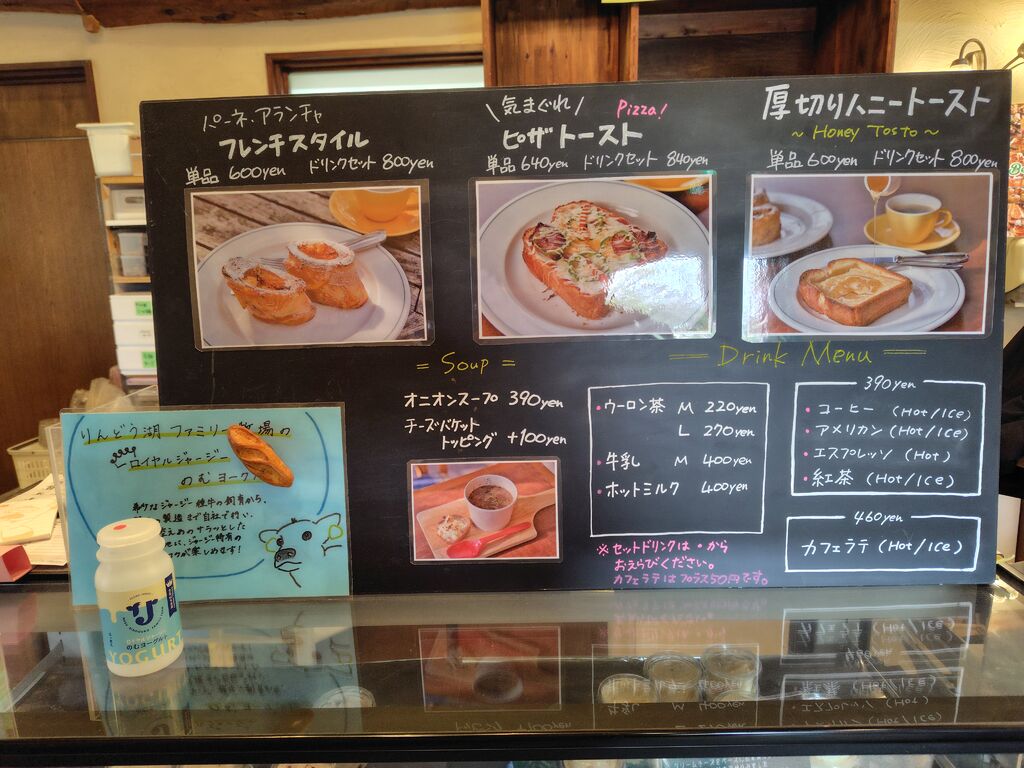 パーネ・アランチャ
フレンチスタイル
単品 600yen ドリンクセット 800yen
\気まぐれ/ Pizza!
ピザトースト
単品 640yen ドリンクセット 840yen
厚切りハニートースト
~ Honey Tosto ~
単品 600yen ドリンクセット 800yen
= Soup =
オニオンスープ 390yen
チーズバケット
トッピング +100yen
== Drink Menu ==
・ウーロン茶 M 220yen
L 270yen
・牛乳 M 400yen
・ホットミルク 400yen
※セットドリンクは・から
おえらびください。
カフェラテはプラス50円です。
390yen
・コーヒー (Hot/Ice)
・アメリカン (Hot/Ice)
・エスプレッソ (Hot)
・紅茶 (Hot/Ice)
460yen
カフェラテ (Hot/Ice)
りんどう湖 ファミリー牧場の
ロイヤルジャージー
のむヨーグ
ジャージー種牛の飼育から、
製造まで自社で行い、
サラッとした
ジャージー特有の
が楽しめます!
のむヨーグルト
YOGURT